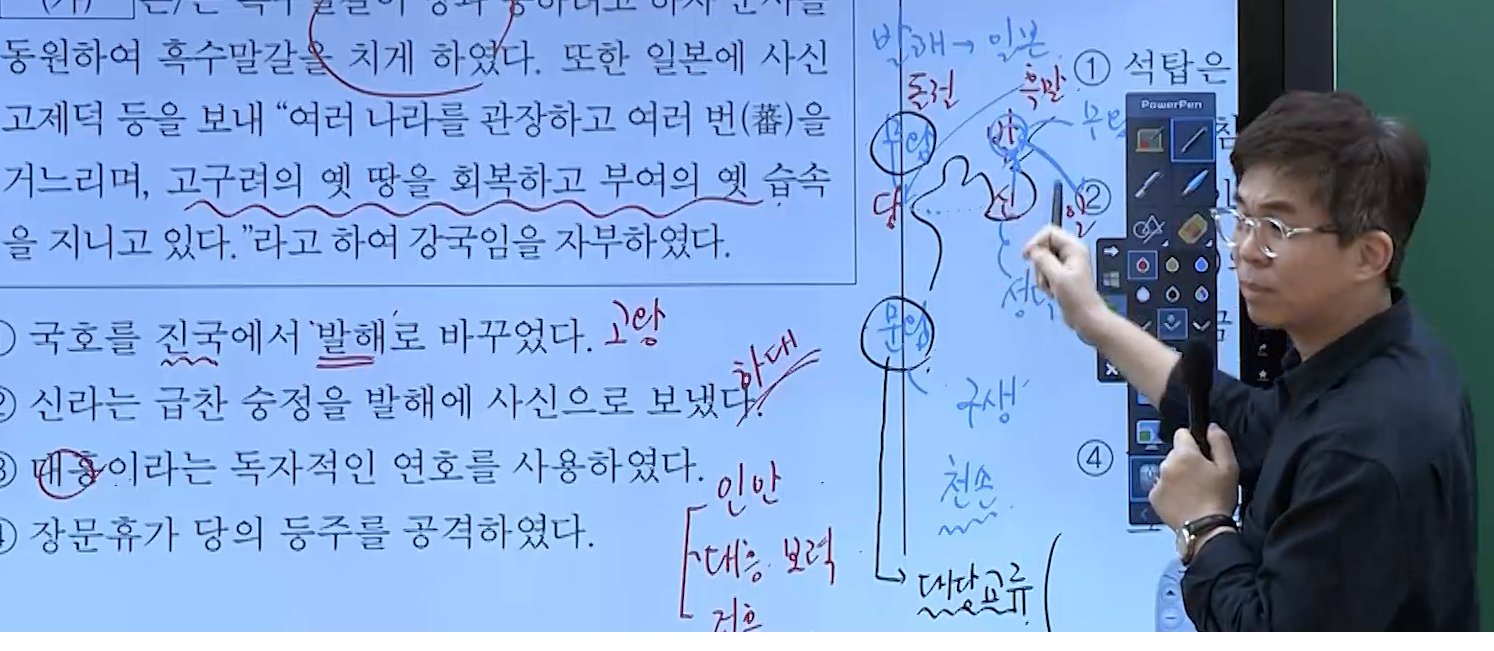 (가) 은/는 흑수말갈이 당과 통하려고 하자 군사를
동원하여 흑수말갈을 치게 하였다. 또한 일본에 사신
고제덕 등을 보내 “여러 나라를 관장하고 여러 번(蕃)을
거느리며, 고구려의 옛 땅을 회복하고 부여의 옛 습속
을 지니고 있다.”라고 하여 강국임을 자부하였다.
국호를 진국에서 발해로 바꾸었다. 고왕
② 신라는 급찬 숭정을 발해에 사신으로 보냈다. 하대
③ 대흥이라는 독자적인 연호를 사용하였다.
장문휴가 당의 등주를 공격하였다.
인안
대흥 보력
발해→일본
돌궐 흑말
무왕 발 무왕
당 신 일
문왕
구생
천손
대당교류
① 석탑은
②
④
PowerPen